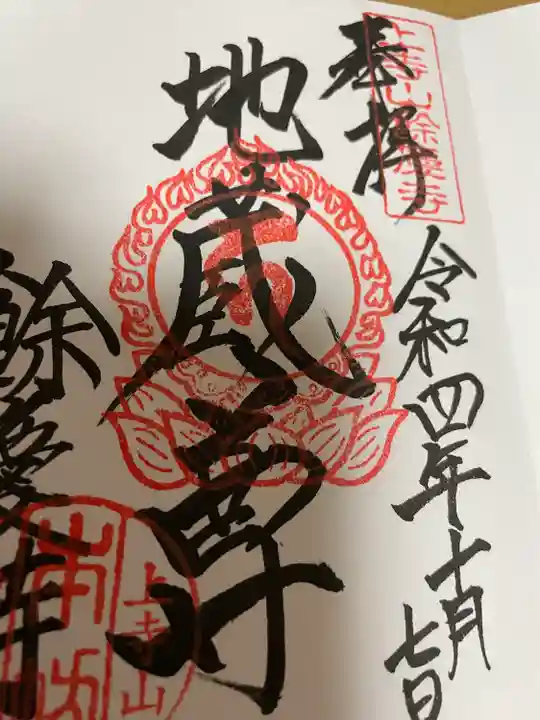 奉拝
上寺山餘慶寺
令和四年十月
七日
地蔵尊
餘慶寺
上寺山